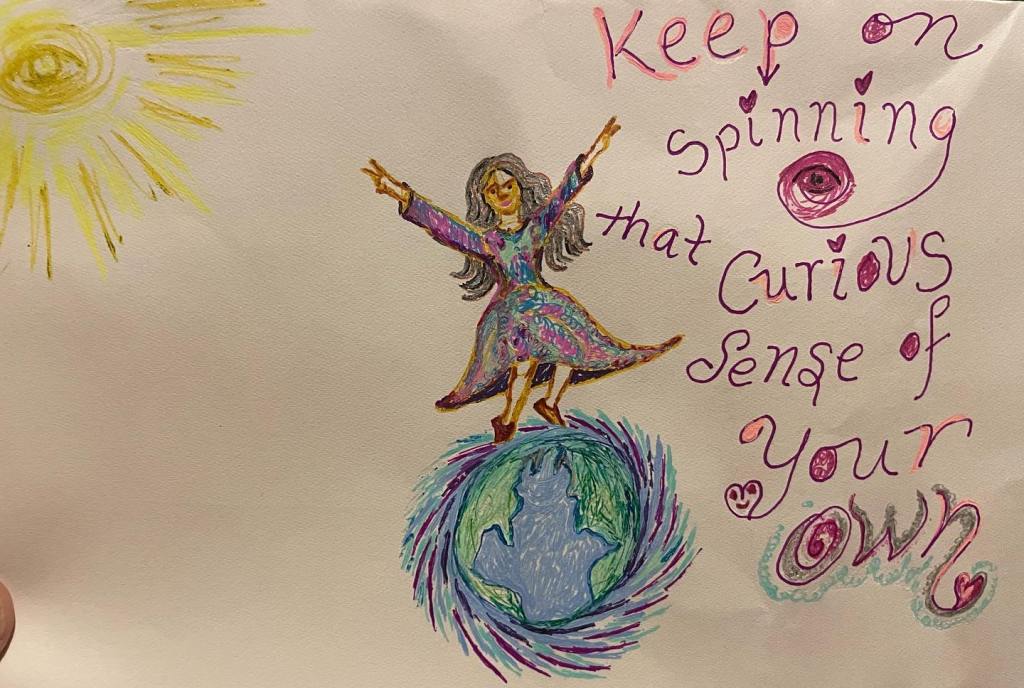 Keep on
spinning
that
Curious
Sense of
Your
own